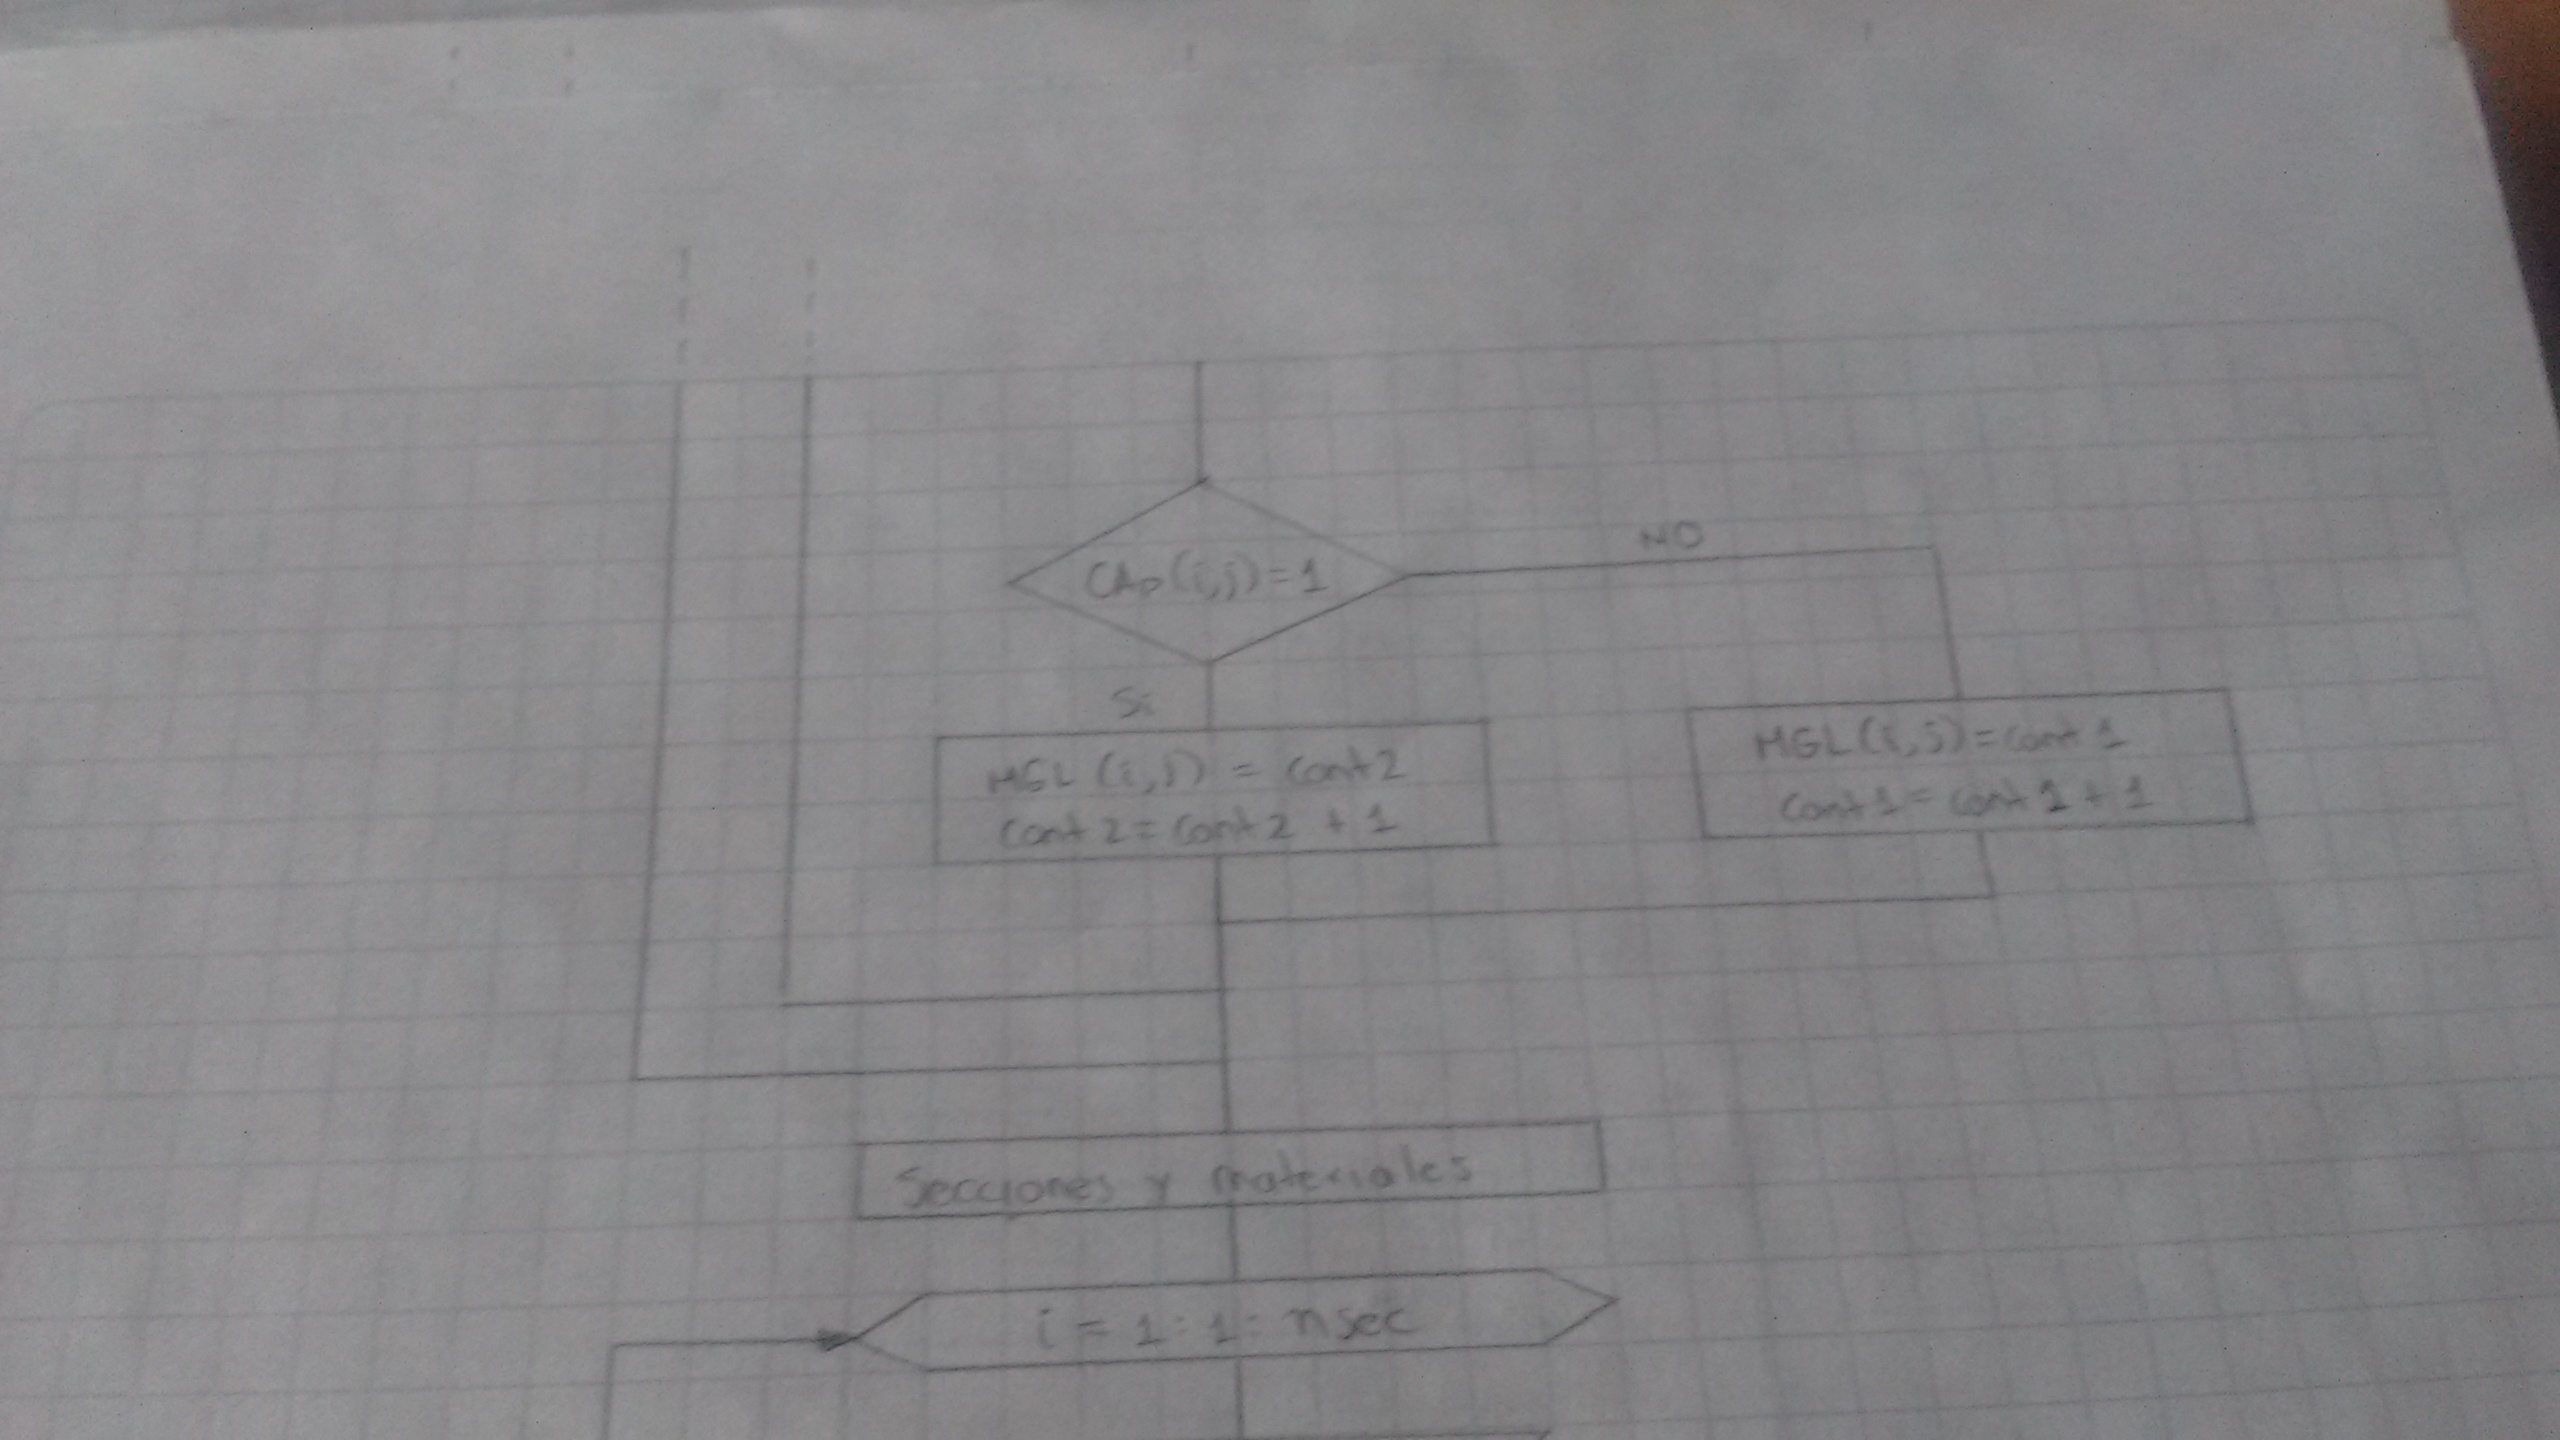 CAp(i,j)=1
NO
Si
MGL (i,j) = cont2
cont 2 = cont 2 + 1
MGL(i,j)=cont 1
cont 1 = cont 1 + 1
Secciones y materiales
i = 1:1: nsec